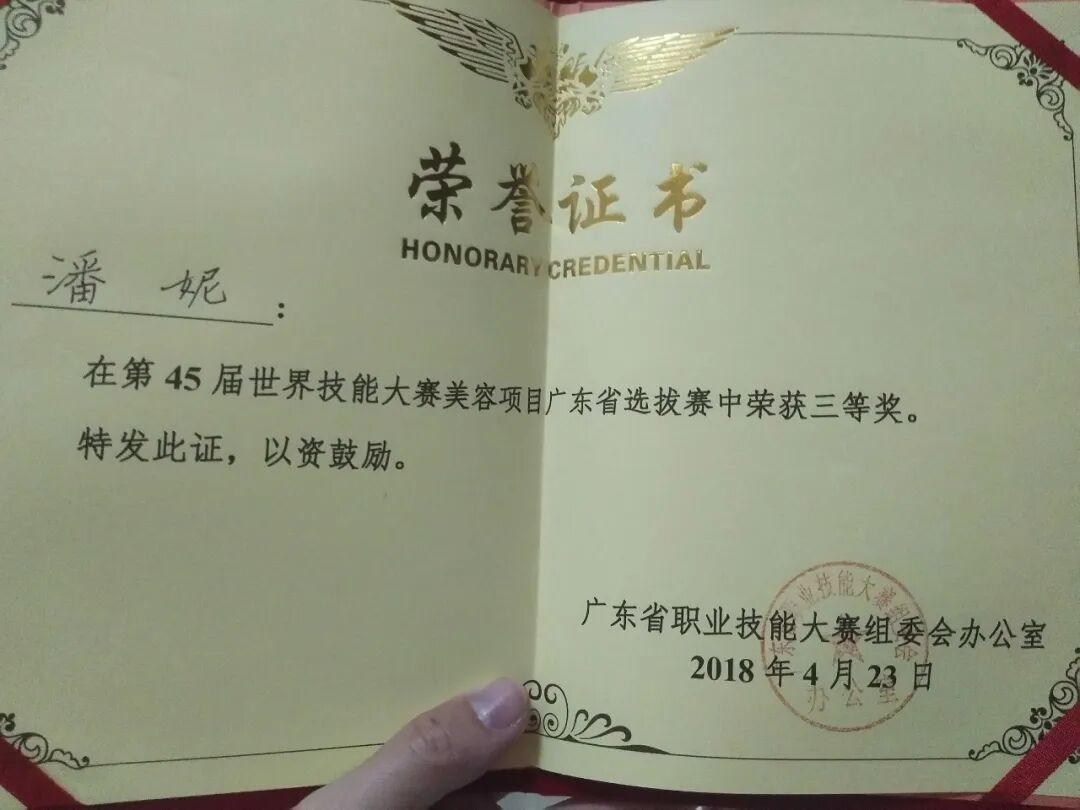 荣誉证书
HONORARY CREDENTIAL
潘妮：
在第45届世界技能大赛美容项目广东省选拔赛中荣获三等奖。
特发此证，以资鼓励。
广东省职业技能大赛组委会办公室
2018年4月23日
东省职业技能大赛组委会
办公室